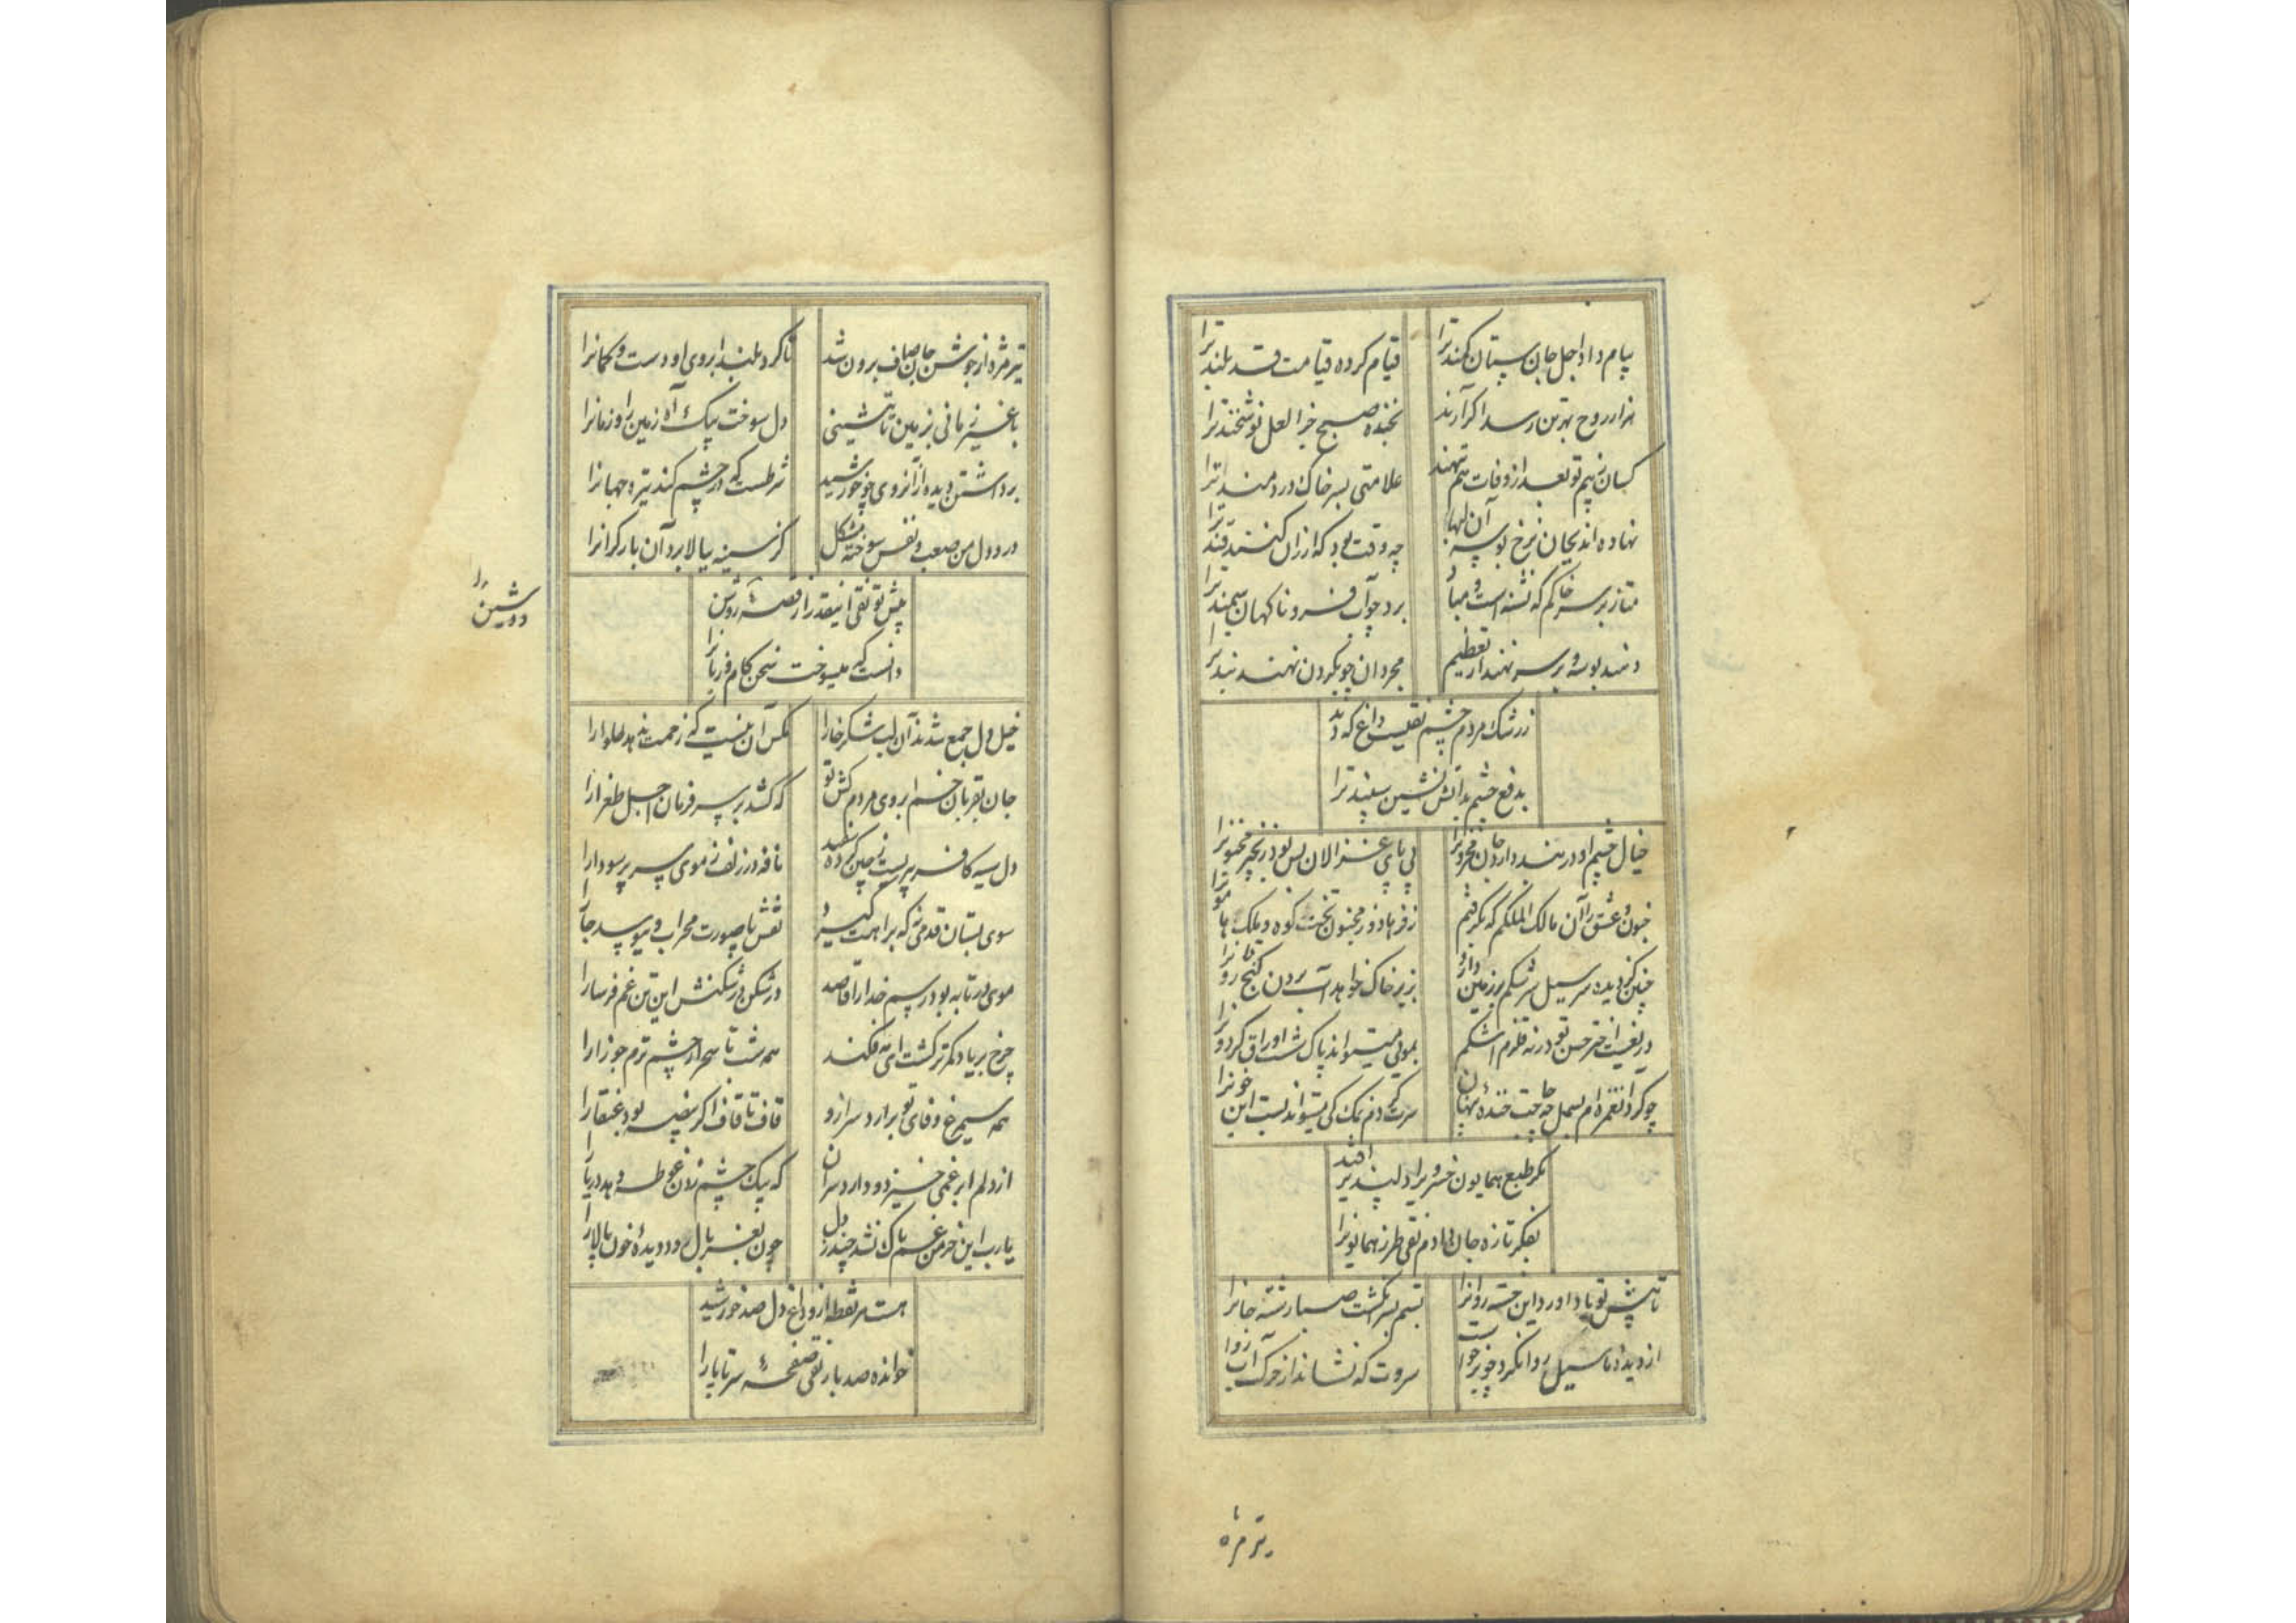 پیام داد اجل جان ستان کمند ترا قیام کرده قیامت قد بلند ترا
هزار روح بهر تن رسد اگر آرند بخنده صبح جزا لعل نوشخند ترا
کسان بهم تو بعد از وفات هم نهند علامتی بسر خاک دردمند ترا
نهاده اند بجان نرخ بوسه آن لبها چه وقت بود که ارزان کنند قند ترا
متاز بر سر خاکم که تشنه است و مباد برد چو آب فرو ناگهان سمند ترا
دهند بوسه و بر سر نهند از تعظیم مجردان چو بگردن نهند بند ترا
ز رشک مردم چشم تقیست داغ که دید
بدفع چشم بد آتش نشین سپند ترا
خیال چشم او در بند دارد جان محزونرا پی پای غزالان بس بود زنجیر مجنونرا
جنون عشق را آن مالک الملکم که بگرفتم ز فرهاد و ز مجنون تخت کوه و ملک هامونرا
چنین کز دیده سر سیل سرشکم بر زمین دارد بزیر خاک خواهد آب بردن گنج قارونرا
دریغست اختر حسن تو ورنه قلزم اشکم بموجی میتواند پاک شست اوراق گردونرا
چو کرد آن غمزه ام بسمل چه حاجت خنده پنهان سرت گردم نمک کی میتواند بست این خونرا
مگر طبع همایون خسروی را دلپذیر افتد
بفکر تازه جان دادم تقی طرز همایونرا
تا پیش تو باد آورد این خسته روانرا بستم بسر انگشت صبا رشته جانرا
از دیده ما سیل روان کرد چو برخواست سروت که نشاند از حرکت آب روانرا
تیر مژه
تیر مژه از جوشن جان صاف برون شد تا کرد بلند ابروی او دست و کمانرا
با غیر زمانی بزمین تا ننشینی دل سوخت بیک آه زمین را و زمانرا
برداشتن دیده از آنروی چو خورشید شرطست که در چشم کند تیره جهانرا
درد دل من صعب و نفس سوخته مشکل کز سینه ببالا برد آن بار گرانرا
پیش تو تقی اینقدر از قصه روشن
دانست که میسوخت سخن کام و زبانرا
دوشین را
خیل دل جمع شدند آن لب شکر خارا مگس آن نیست که زحمت ندهد حلوارا
جان بقربان خم ابروی مردم کش تو که کشد بر سر فرمان اجل طغرارا
دل سیه کافر بت پرست ز چین کرده نافه در زلف ز موی سر پر سودارا
سوی بستان قدمی نه که براهت گیرد نقش پا صورت محراب و ببوسد جارا
موی در تابه بود رسم خدا را قاصد در شکن در شکنش این تن غم فرسارا
چرخ بر یاد کمر ترکشت ای مه فکند همه شب تا سحر از چشم ترم جوزارا
همه سیمرغ وفای تو برآرد سر ازو قاف تا قاف اگر بیضه بود عنقارا
از دلم ابر غمی خیزد و دارد سر آن که بیک چشم زدن غوطه دهد دریارا
یارب این خرمن غم پاک نشد چند ز دل چون بغربال رود دیده خون پالارا
هست هر نقطه ازو داغ دل صد خورشید
خوانده صد بار تقی صفحه سر تا پارا